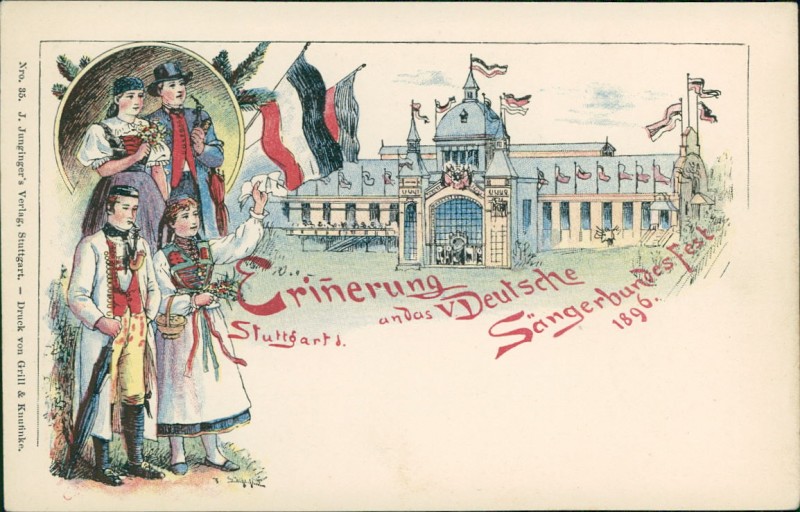 Nro. 35. J. Junginger's Verlag, Stuttgart. — Druck von Grill & Knufinke.
Erin̄erung
an das V Deutsche
Sängerbundesfest
Stuttgart d. 1896.